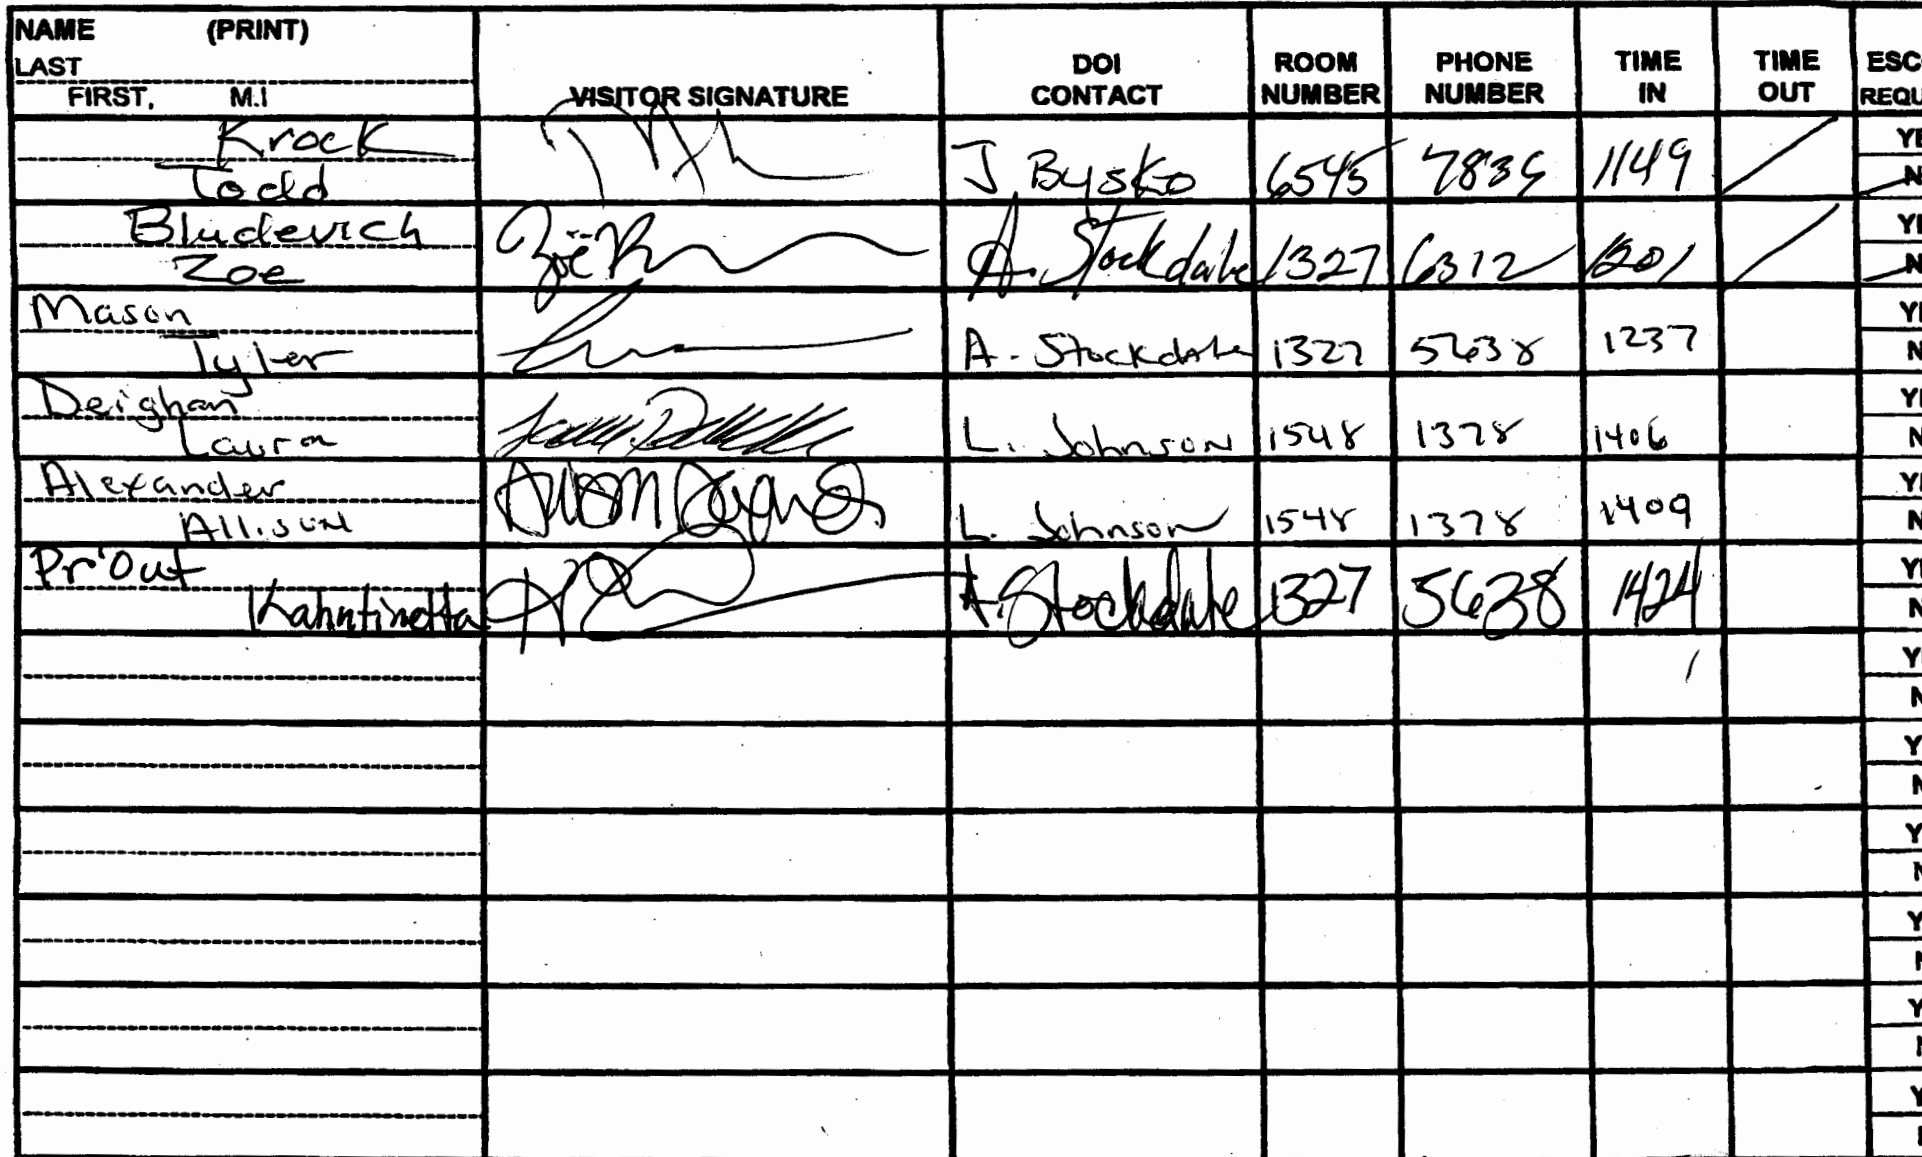 NAME (PRINT)
LAST
FIRST, M.I
VISITOR SIGNATURE
DOI CONTACT
ROOM NUMBER
PHONE NUMBER
TIME IN
TIME OUT
Krock
Todd J Bysko 6545 1149
Bludevich
Zoe Zoë A. Stockdale 1327 6312 1201
Mason
Tyler A. Stockdale 1327 5638 1237
Deighan
Laura L. Johnson 1548 1378 1406
Alexander
Allison L. Johnson 1548 1378 1409
Pr'Out
Kahntinetta A. Stockdale 1327 5638 1424